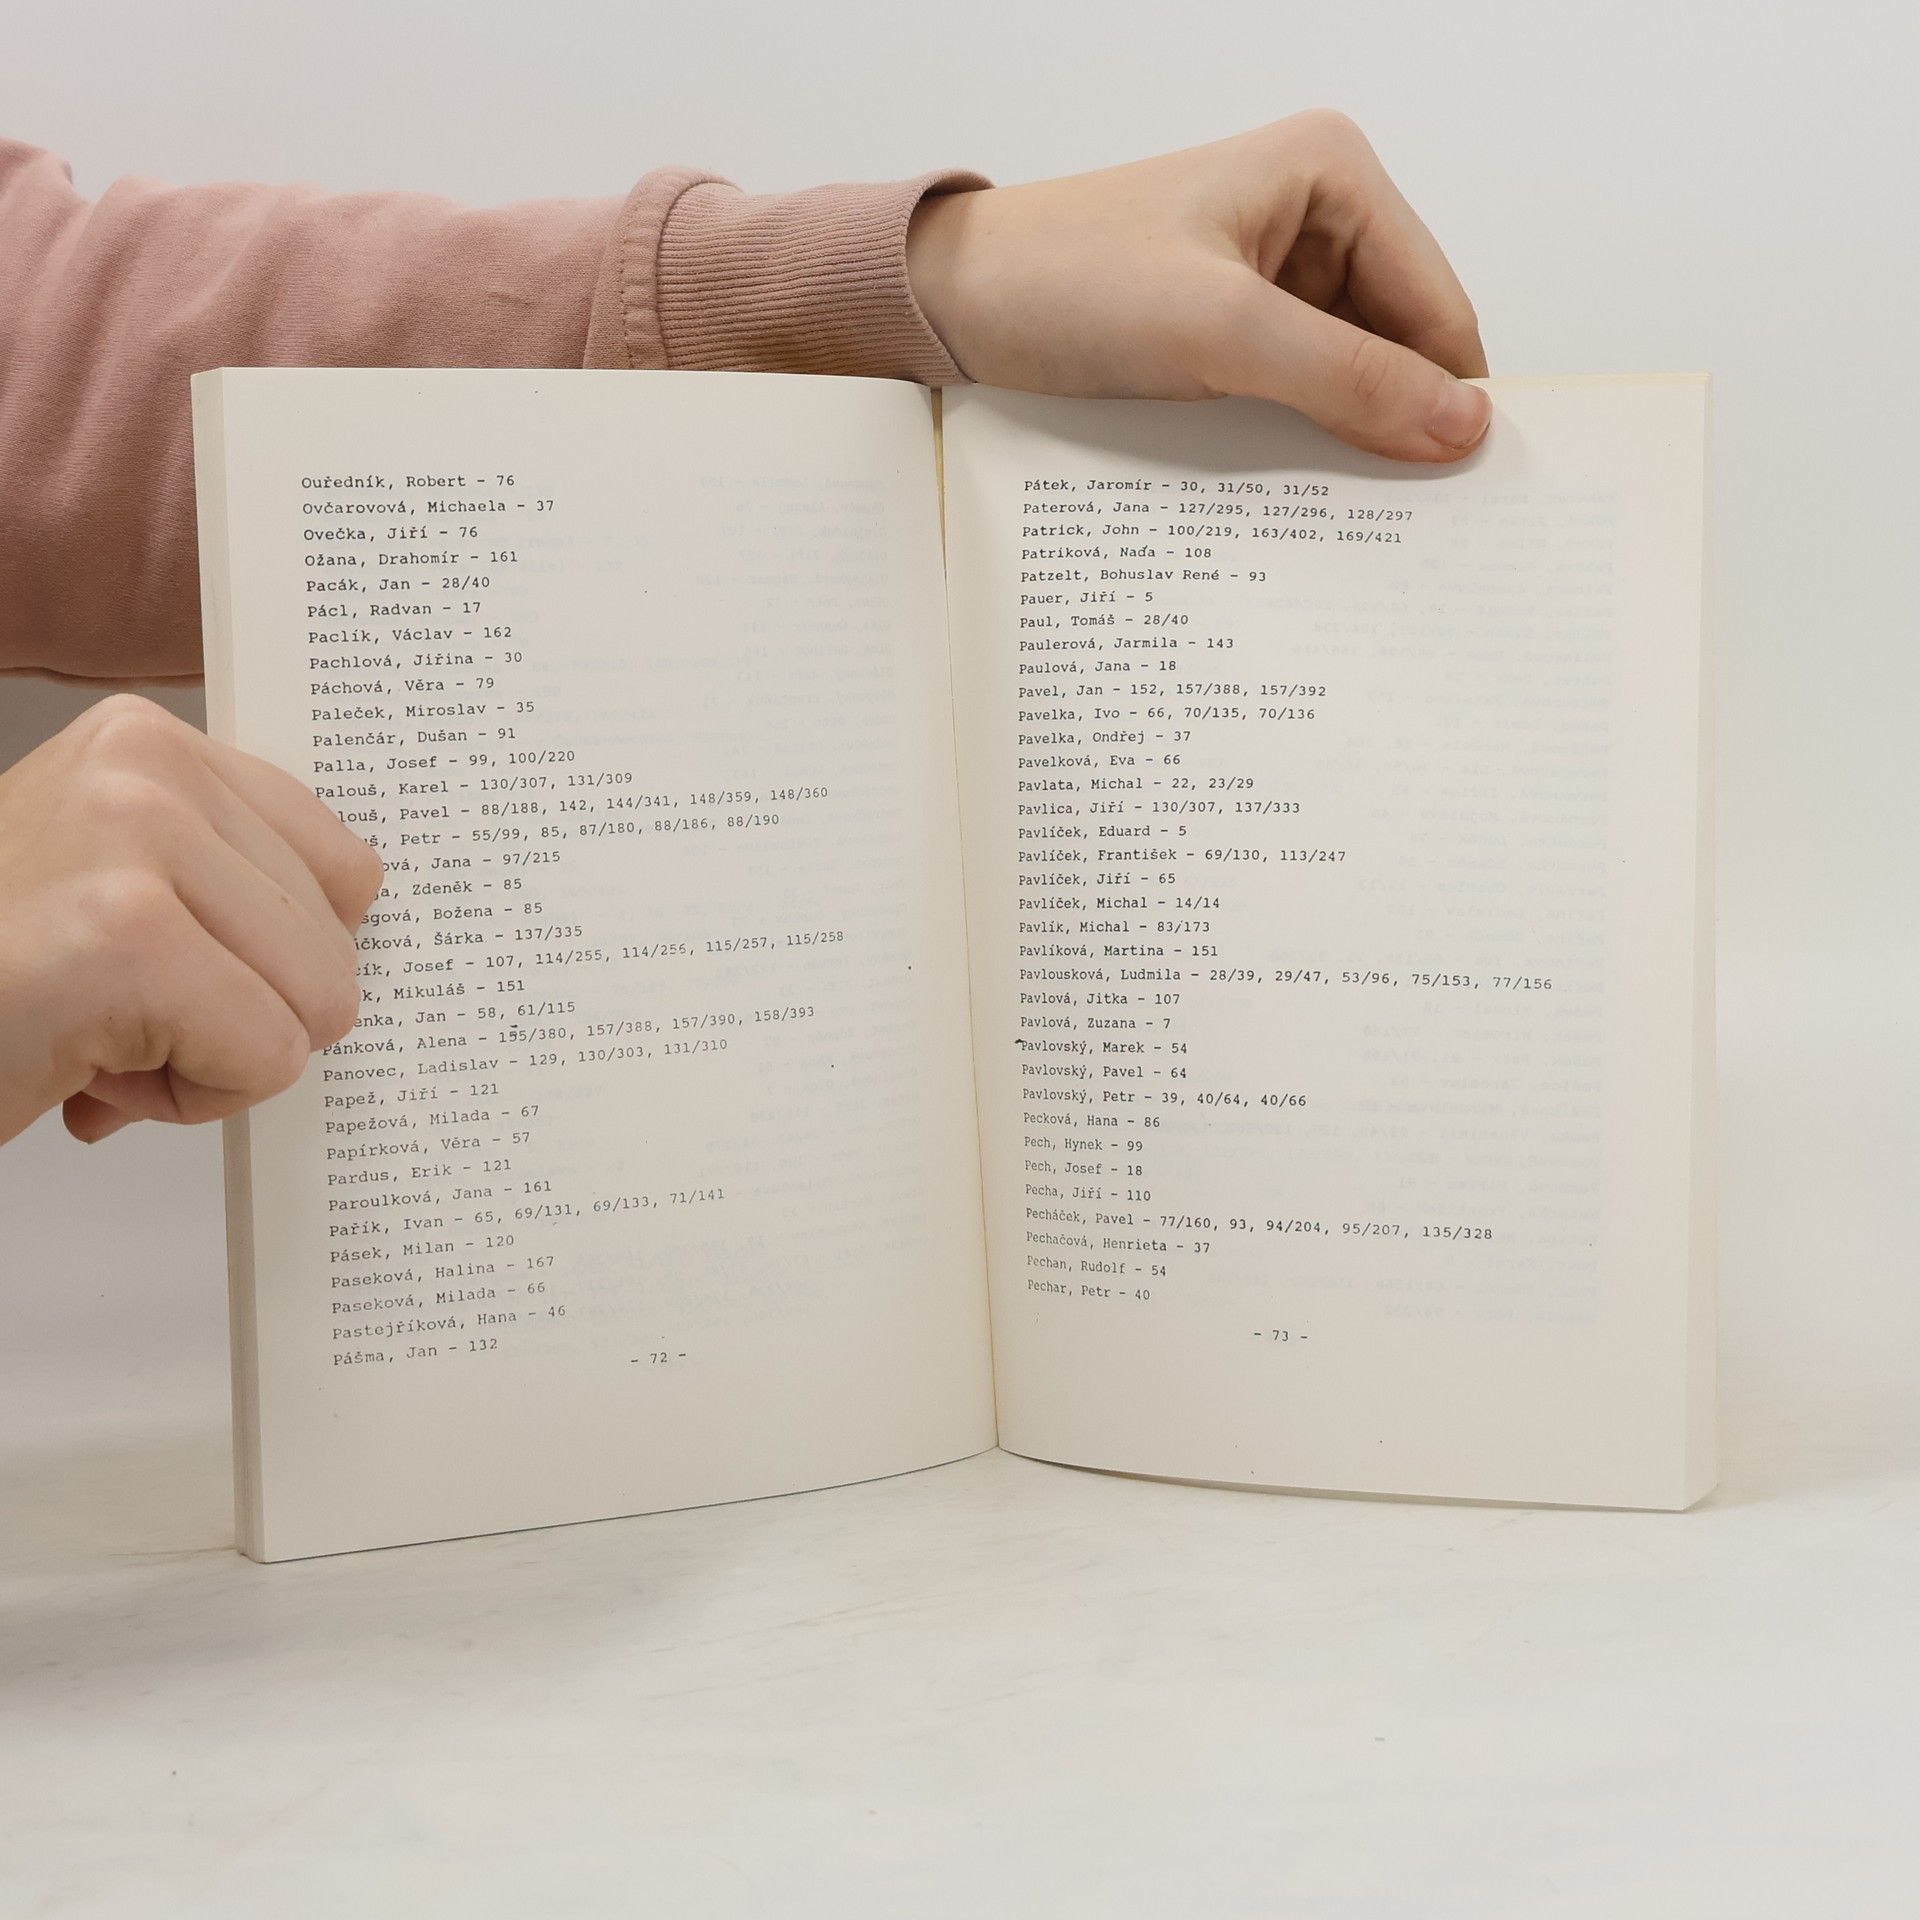 Ouředník, Robert - 76
Ovčarovová, Michaela - 37
Ovečka, Jiří - 76
Ožana, Drahomír - 161
Pacák, Jan - 28/40
Pácl, Radvan - 17
Paclík, Václav - 162
Pachlová, Jiřina - 30
Páchová, Věra - 79
Paleček, Miroslav - 35
Palenčár, Dušan - 91
Palla, Josef - 99, 100/220
Palouš, Karel - 130/307, 131/309
Pavel - 88/188, 142, 144/341, 148/359, 148/360
Petr - 55/99, 85, 87/180, 88/186, 88/190
Jana - 97/215
Zdeněk - 85
Božena - 85
Šárka - 137/335
Josef - 107, 114/255, 114/256, 115/257, 115/258
Mikuláš - 151
Jan - 58, 61/115
Pánková, Alena - 155/380, 157/388, 157/390, 158/393
Panovec, Ladislav - 129, 130/303, 131/310
Papež, Jiří - 121
Papežová, Milada - 67
Papírková, Věra - 57
Pardus, Erik - 121
Paroulková, Jana - 161
Pařík, Ivan - 65, 69/131, 69/133, 71/141
Pásek, Milan - 120
Paseková, Halina - 167
Paseková, Milada - 66
Pastejříková, Hana - 46
Pášma, Jan - 132
- 72 -
Pátek, Jaromír - 30, 31/50, 31/52
Paterová, Jana - 127/295, 127/296, 128/297
Patrick, John - 100/219, 163/402, 169/421
Patriková, Naďa - 108
Patzelt, Bohuslav René - 93
Pauer, Jiří - 5
Paul, Tomáš - 28/40
Paulerová, Jarmila - 143
Paulová, Jana - 18
Pavel, Jan - 152, 157/388, 157/392
Pavelka, Ivo - 66, 70/135, 70/136
Pavelka, Ondřej - 37
Pavelková, Eva - 66
Pavlata, Michal - 22, 23/29
Pavlica, Jiří - 130/307, 137/333
Pavlíček, Eduard - 5
Pavlíček, František - 69/130, 113/247
Pavlíček, Jiří - 65
Pavlíček, Michal - 14/14
Pavlík, Michal - 83/173
Pavlíková, Martina - 151
Pavlousková, Ludmila - 28/39, 29/47, 53/96, 75/153, 77/156
Pavlová, Jitka - 107
Pavlová, Zuzana - 7
Pavlovský, Marek - 54
Pavlovský, Pavel - 64
Pavlovský, Petr - 39, 40/64, 40/66
Pecková, Hana - 86
Pech, Hynek - 99
Pech, Josef - 18
Pecha, Jiří - 110
Pecháček, Pavel - 77/160, 93, 94/204, 95/207, 135/328
Pechačová, Henrieta - 37
Pechan, Rudolf - 54
Pechar, Petr - 40
- 73 -